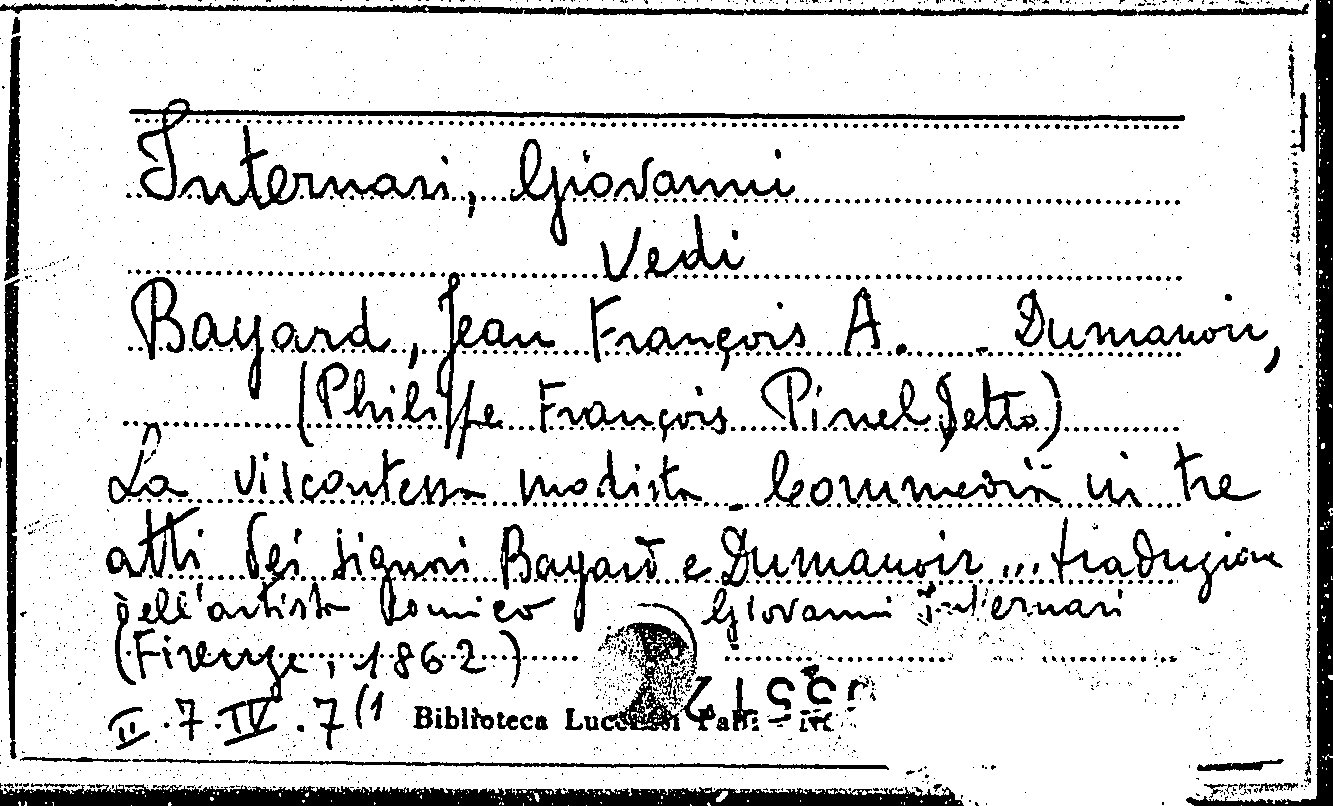 Internari, Giovanni
Vedi
Bayard, Jean François A. - Dumanoir,
(Philippe François Pinel detto)
La viscontessa modista - Commedia in tre
atti dei signori Bayard e Dumanoir ... traduzione
dell'artista comico Giovanni Internari
(Firenze, 1862)
II.7.IV.7(1
Biblioteca